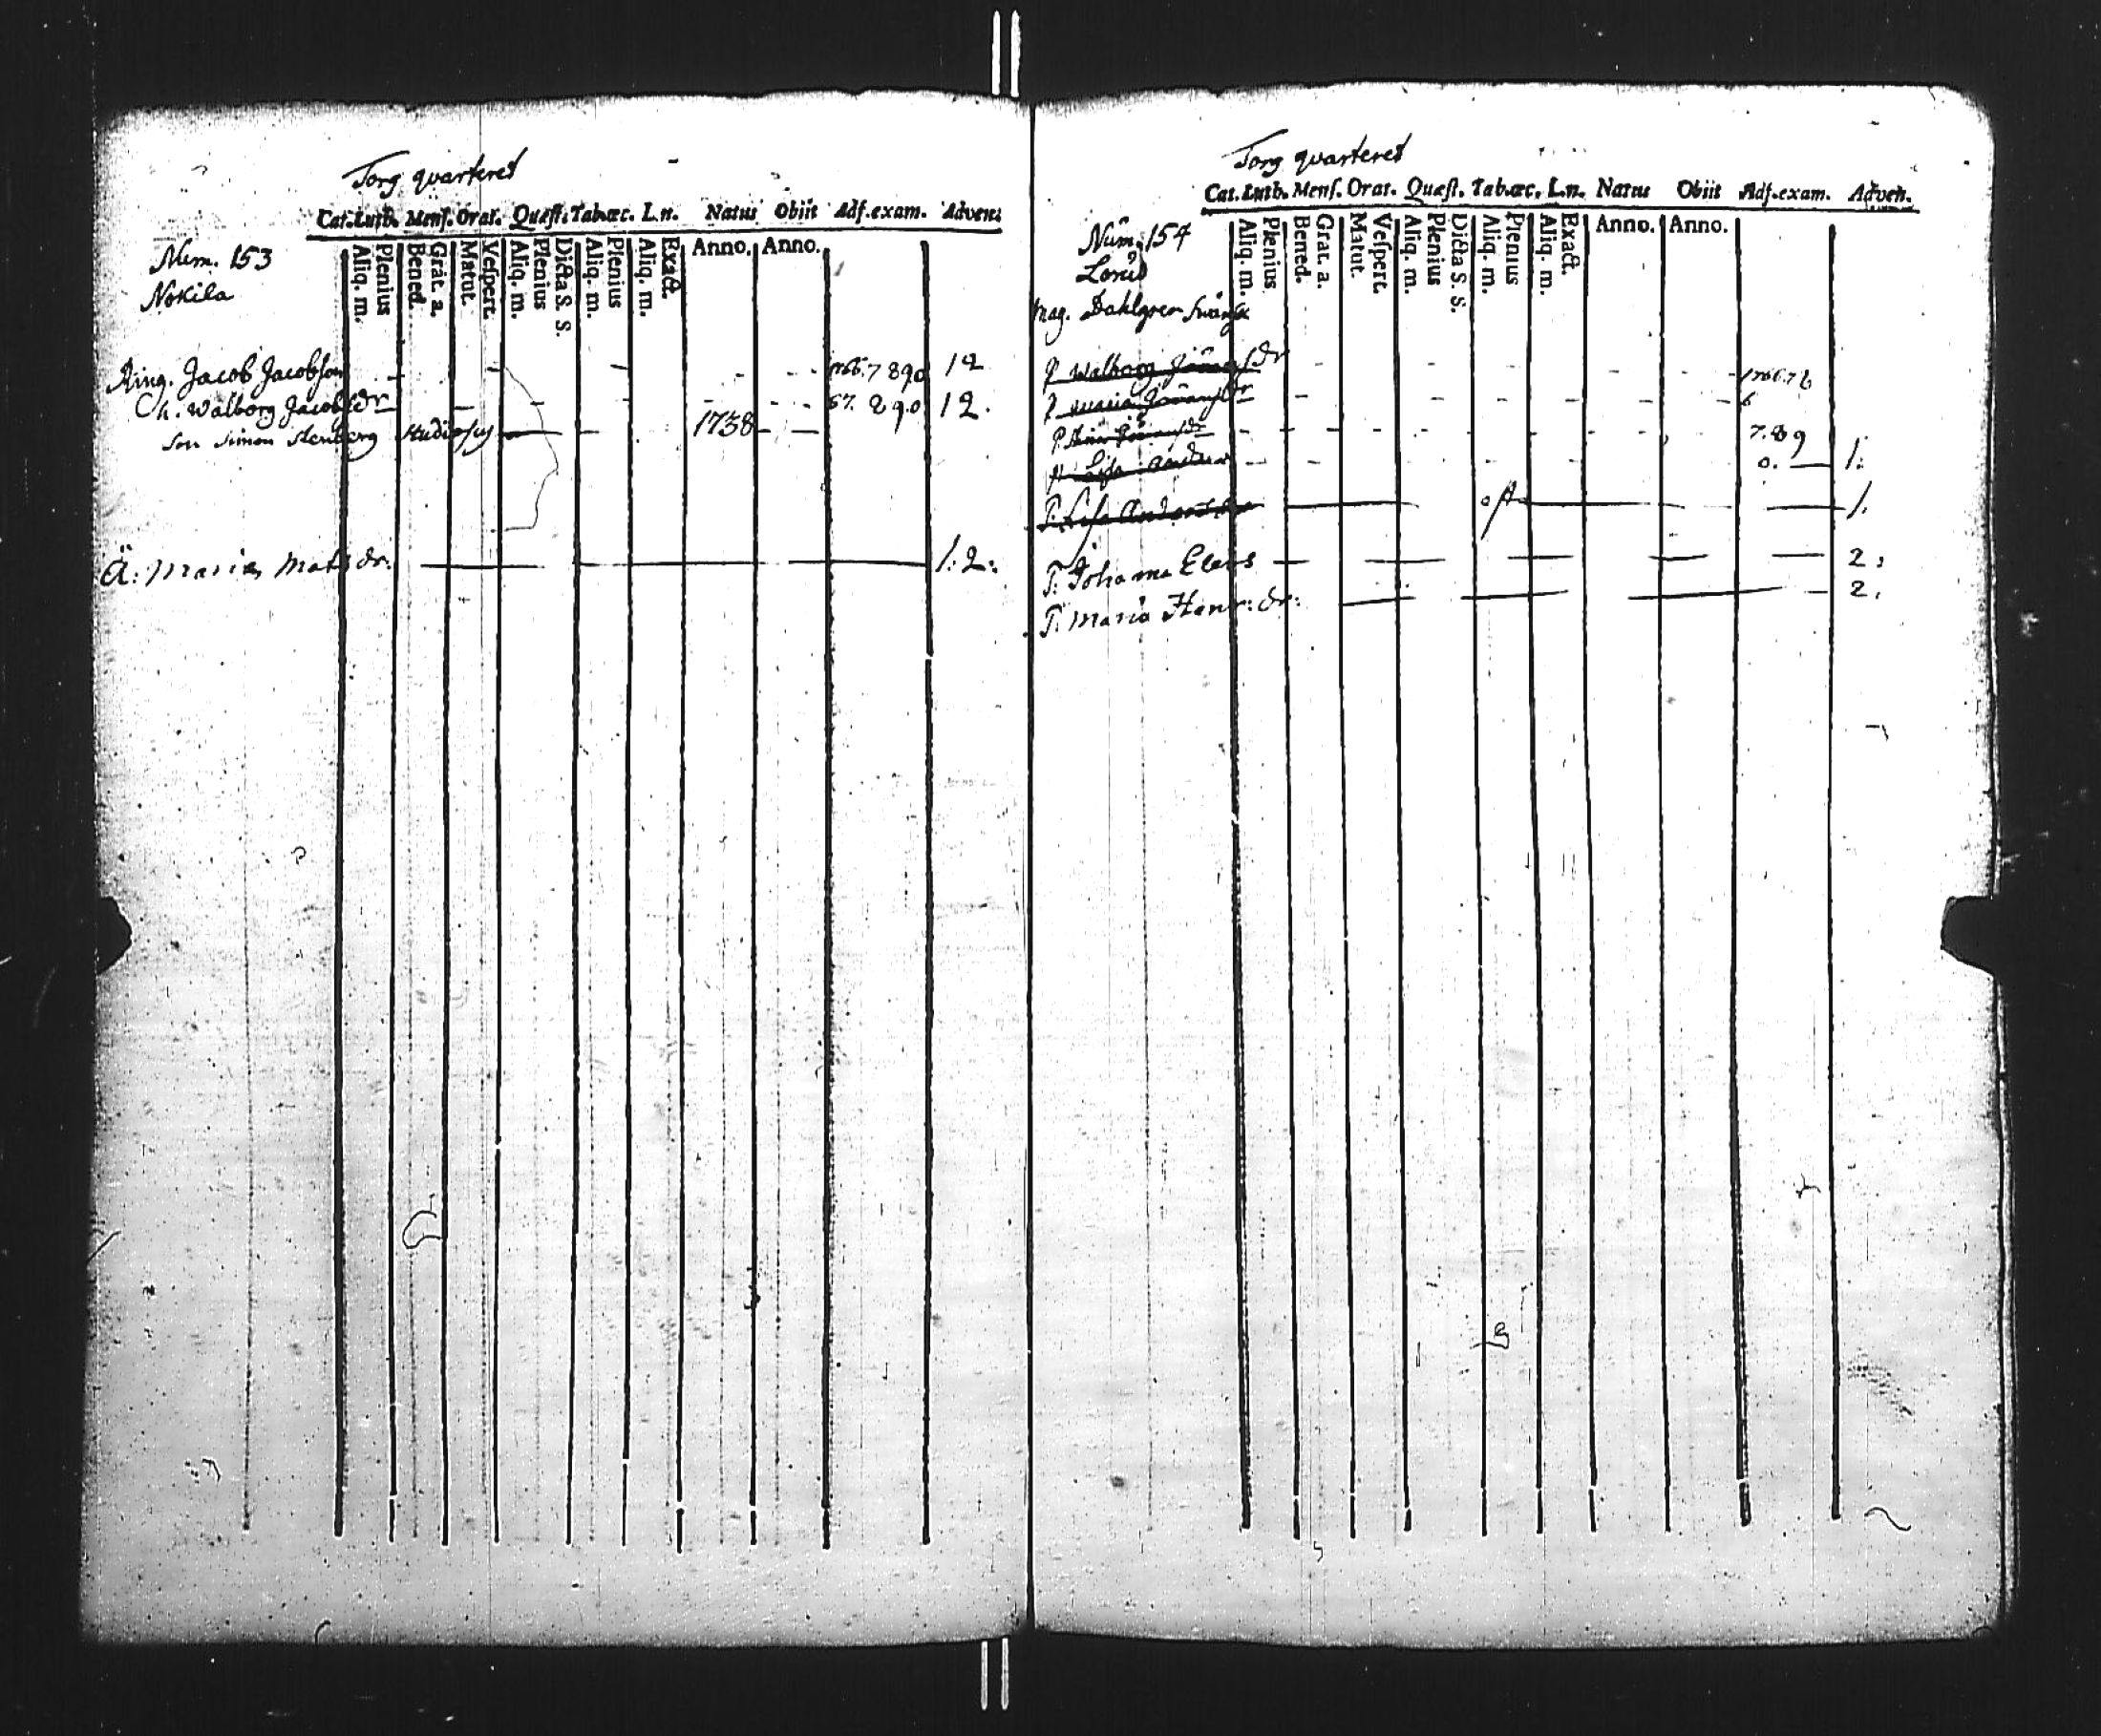 Torg quarteret
Cat. Luth. Menſ. Orat. Quæſt. Tab.œc. L.n. Natus Obiit Adſ.exam. Adven.
Aliq. m. Plenius Bened. Grat. a. Matut. Veſpert. Aliq. m. Plenius Dicta S. S. Aliq. m. Plenius Aliq. m. Exact. Anno. Anno.
Num. 153
Nokila
Ring. Jacob Jacobſon 1766. 7 8 9 0 12
h. Walborg Jacobsdr 67. 8 9. 0 12.
Son Simon Stenberg Studiosus 1738
Ä: Maria Matsdr. 1: 2:
Torg quarteret
Cat. Luth. Menſ. Orat. Quæſt. Tab.œc. L.n. Natus Obiit Adſ.exam. Adven.
Aliq. m. Plenius Bened. Grat. a. Matut. Veſpert. Aliq. m. Plenius Dicta S. S. Aliq. m. Plenius Aliq. m. Exact. Anno. Anno.
Num. 154
Mag. Dahlgren
P Walborg dr
P Maria
P. 7. 8 9
Lisa 0. 1:
P. Lisa 1.
P. Johanna 2:
P. Maria Henr: dr: 2.